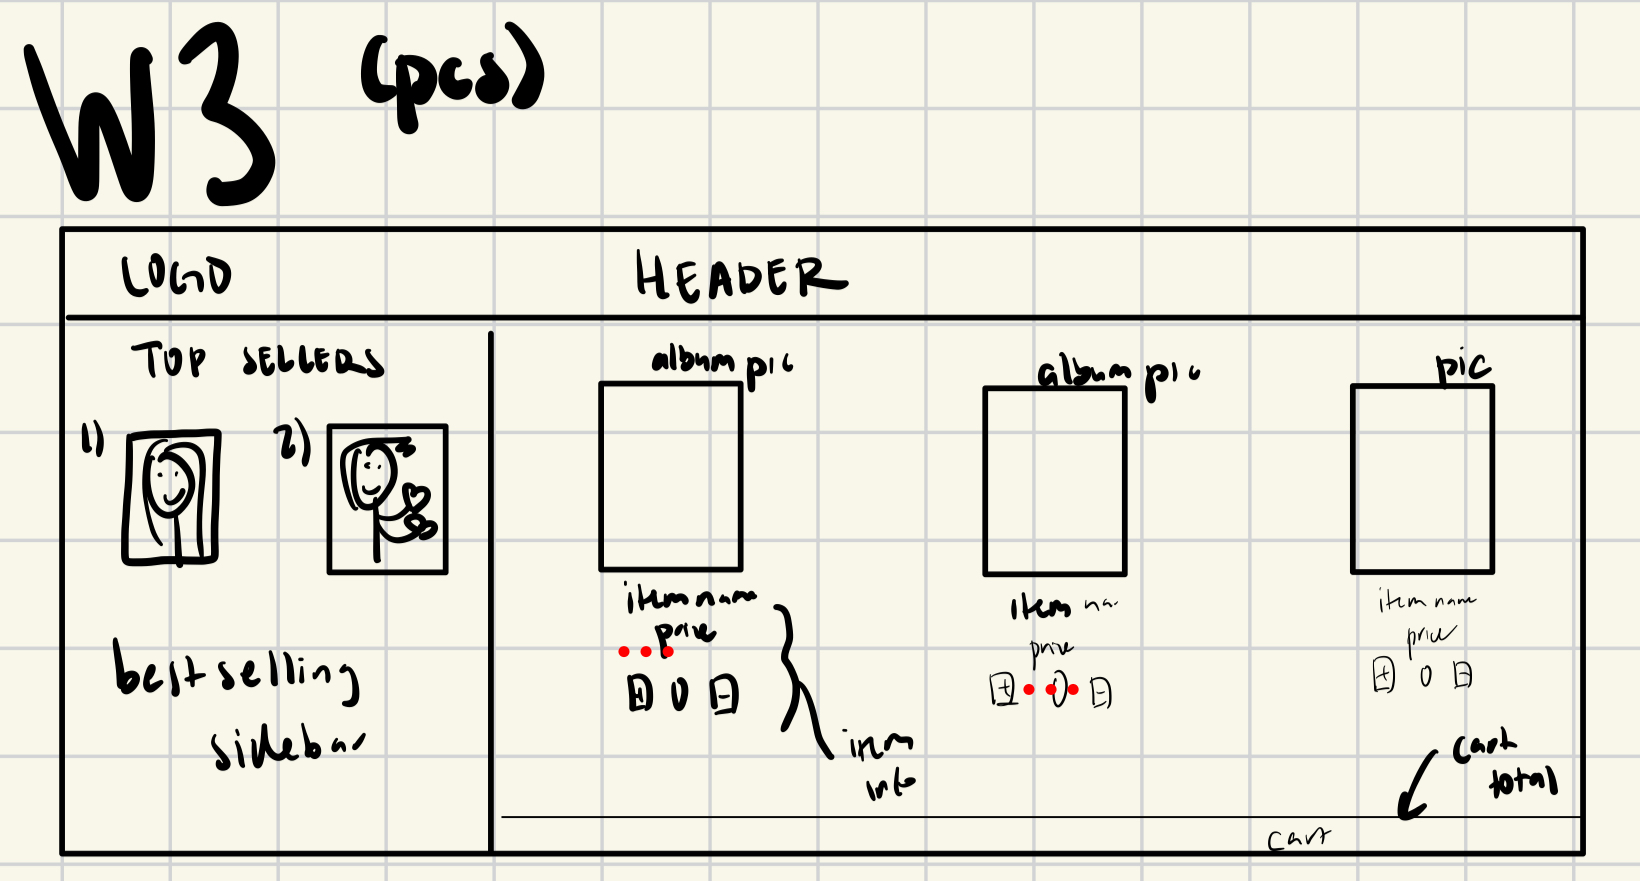 W3 (pcs)
LOGO HEADER
TOP SELLERS
1) 2)
best selling
sidebar
album pic
item name
price
+ 0 -
item
info
album pic
item na.
price
+ 0 -
pic
item name
price
+ 0 -
cart
total
cart